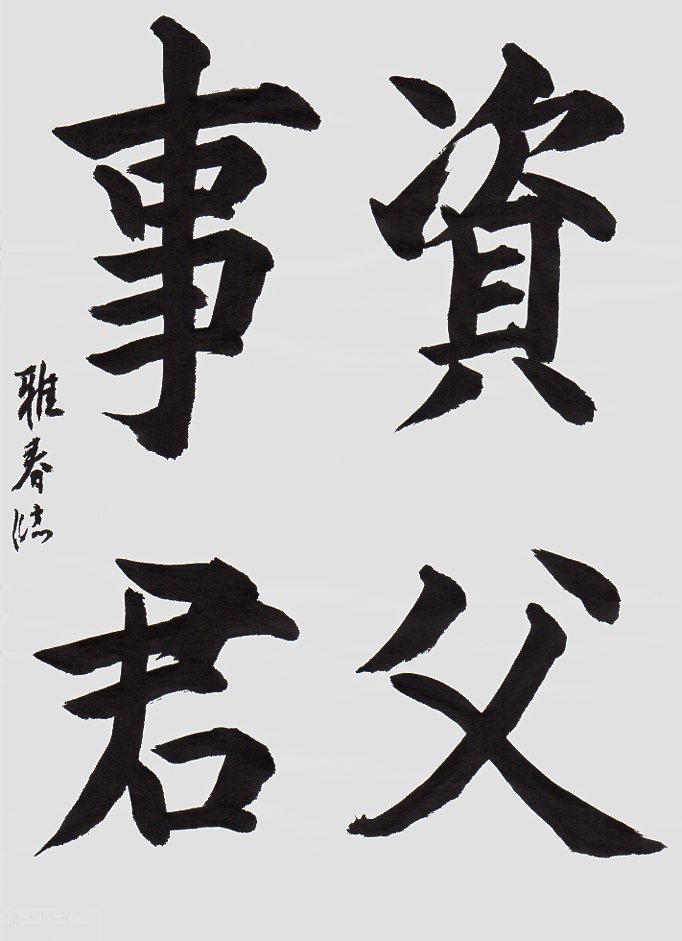 資父
事君
雅春臨